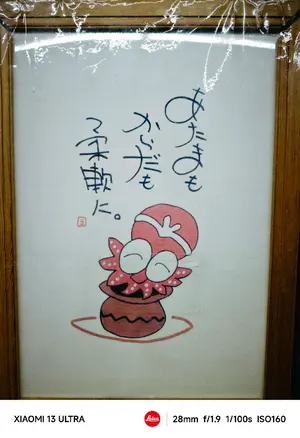 あたまも
からだも
柔軟に。
XIAOMI 13 ULTRA
Leica
28mm f/1.9 1/100s ISO160